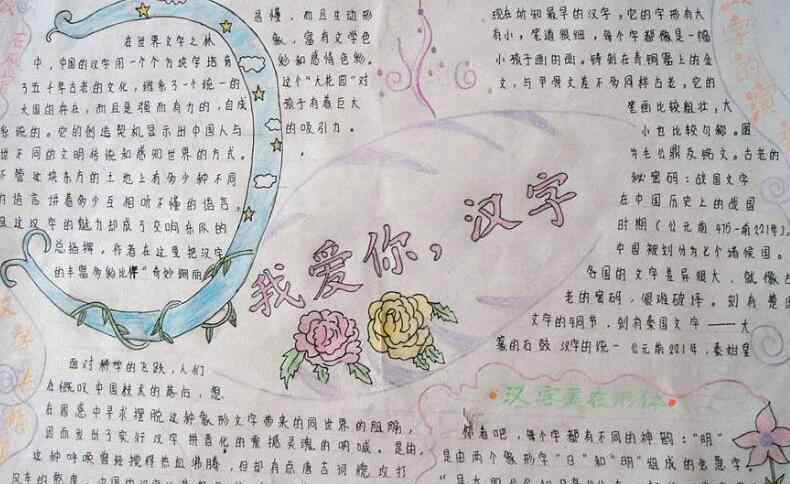 在世界文字之林
中，中国的汉字用一个个方块字培育
了五千年古老的文化，维系了一个统一的
大国的存在，而且是强而有力的，自成
系统的。它的创造契机显示出中国人与
世不同的文明传统和感知世界的方式。
管这块东方的土地上有多少种不同
的语言，讲着多少互相听不懂的语言。
且这汉字的魅力却成了交响乐队的
总指挥，作者在这里把汉字
的丰富多彩比作“奇妙绚丽
懂，而且生动形
象，富有文学色
彩和感情色彩。
这个“大花园”对
孩子有着巨大
的吸引力。
现在所知最早的汉字，它的字形有大
有小，笔道很细，每个字都像是一幅
小孩子画的画。铸刻在青铜器上的金
文，与甲骨文差不多同样古老。它的
笔画比较粗壮，大
小也比较匀称。图
为毛公鼎及铭文。古老的
秘密码：战国文字
在中国历史上的战国
时期（公元前475-前221年），
中国被划分为七个诸侯国。
各国的文字差异很大，就像古
老的密码，很难破译。刻有楚国
文字的马节，刻有秦国文字——大
篆的石鼓 汉字的统一 公元前221年，秦始皇
我爱你，汉字
面对科学的飞跃，人们
在概叹中国技术的落后，想
在困惑中寻求摆脱这种象形文字带来的同世界的阻隔，
因而发出了实行汉字拼音化的震撼灵魂的呐喊。是的，
这种呼唤曾经搅得热血沸腾，但却有点唐吉诃德攻打
汉字美在形体
你看吧，每个字都有不同的神韵：“明”
是由两个象形字“日”和“明”组成的会意字